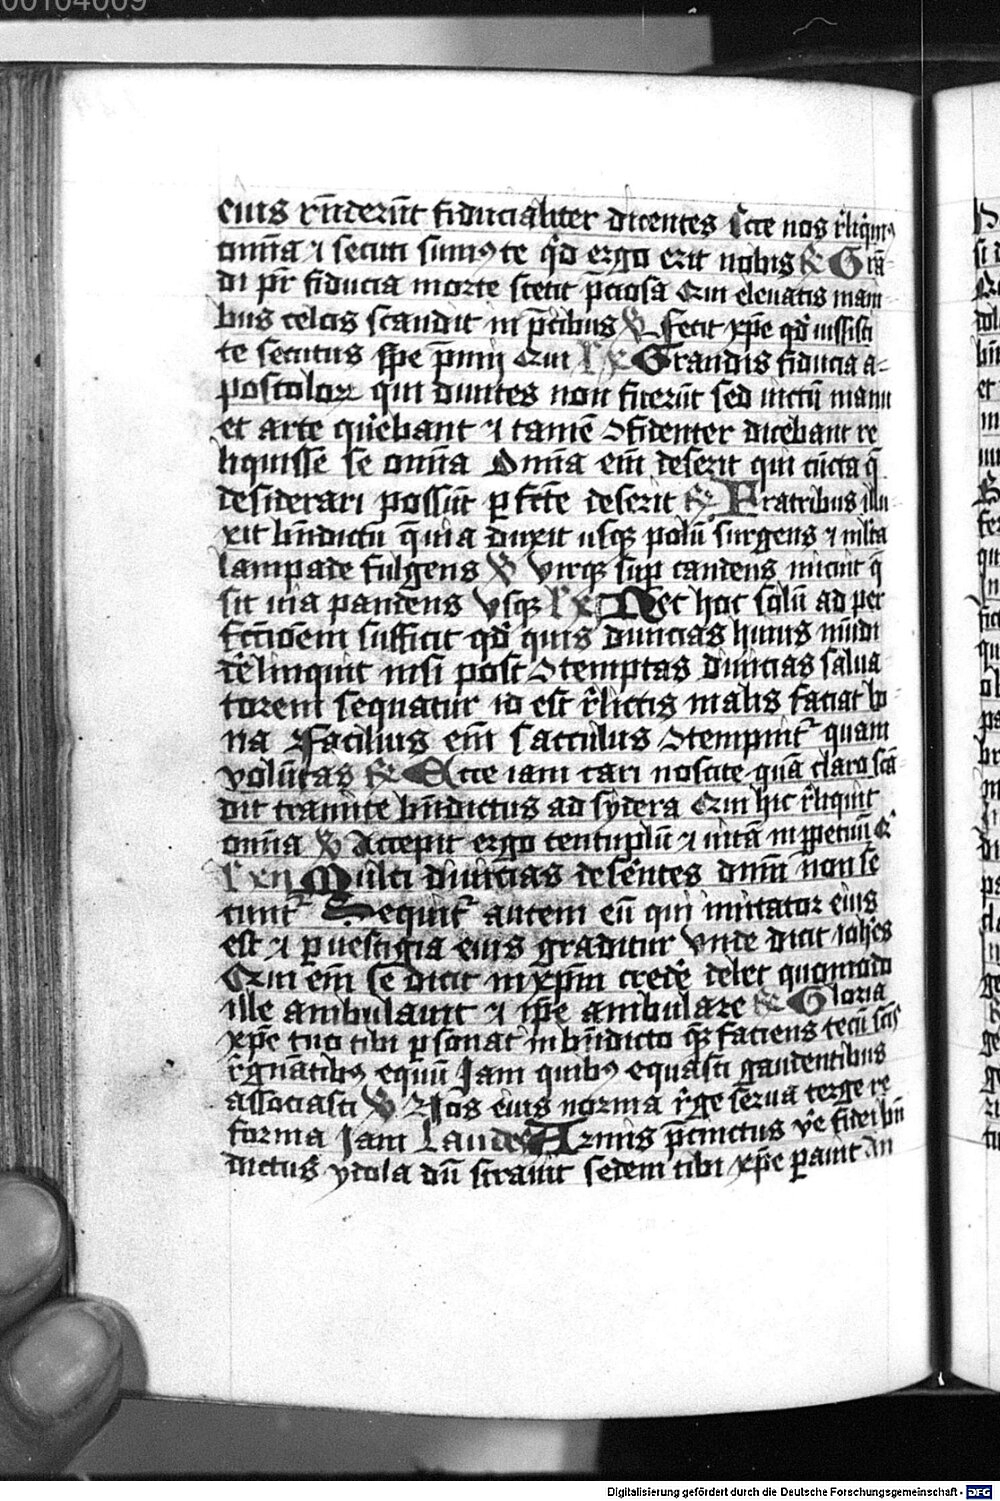 00104009
eius rn̄derūt fiducialiter dicentes Ecce nos rͥliqimꝰ
om̄ia ⁊ secuti sumꝰ te qͦd ergo erit nobis ℟ Grā
di pr̄ fiducia morte stetit p̄ciosa Qui eleuatis mani
bus celos scandit in p̄cibus ℣ Fecit xp̄e qd̓ iussisti
te secutus spe p̄mij Qui Grandis fiducia a
postoloꝝ qui diuites non fuerūt sed victū manu
et arte querebant ⁊ tamē ꝯfidenter dicebant re
liquisse se om̄ia Om̄ia em̄ deserit qui cūcta q̄
desiderari possūt ꝑfc̄te deserit ℟ Fratribus illu
xit bn̄dictū q̄ uia duxit usqꝫ polū surgens ⁊ ml̓ta
lampade fulgens ℣ Virqꝫ suꝑ candens innuit q̄
sit uia pandens Vsqꝫ Nec hoc solū ad per
fcc̄ioēm sufficit qd̓ quis diuicias huius mūdi
derͥlinquit nisi post ꝯtemptas diuicias salua
torem sequatur id est rͥlictis malis faciat bo
na Facilius em̄ sacculus ꝯtempnitᷣ quam
volūtas ℟ Ecce iam cari noscite quā claro scā
dit tramite bn̄dictus ad sydera Qui hic rͥliquit
om̄ia ℣ Accepit ergo centuplū ⁊ uitā in ꝑpetuū Qͥ
Multi diuicias deserētes dn̄m non se
cuntᷣ Sequitᷣ autem eū qui imitator eius
est ⁊ ꝑ uestigia eius graditur Vnde dicit ioh̓es
Qui em̄ se dicit in xp̄m crede̓ debet quomodo
ille ambulauit ⁊ ip̄e ambulare ℟ Gloria
xp̄e tuo tibi ꝑsonat in bn̄dicto qͣꝫ faciens tecū sc̄is
rͥgnātibꝰ equū Iam quibꝰ equasti gaudentibus
associasti ℣ Nos eius norma rͥge serua terge re
forma Iam Laudes Armis p̄cinctus ve̓ fidei bn̄
dictus ydola dū strauit sedem tibi xp̄e ꝑauit An
Digitalisierung gefördert durch die Deutsche Forschungsgemeinschaft - DFG